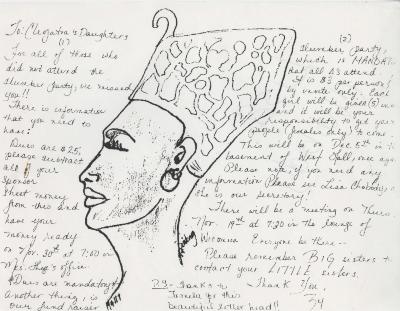 To: Cleopatra's Daughters
(1)
For all of those who
did not attend the
slumber party, we missed
you!!
There is information
that you need to
have:
Dues are $25,
please subtract
all of your
sponsor
sheet money
from this and
have your
money ready
on Nov. 30th at 7:00 in
Ms. office.
Dues are mandatory
Another thing, is
our fund raiser
(2)
slumber party,
which is MANDATORY
that all attend
It is $3 per person
by invite only. Each
girl will be given (5) inv
and it will be your
responsibility to get your
people (females only) to come
This will be on Dec. 5th in the
basement of Hall, once again.
Please note, if you need any
information please see Lisa
she is our secretary!
There will be a meeting on Thurs.
Nov. 19th at 7:30 in the lounge of
Wenonna Everyone be there--
Please remember BIG sisters to
contact your LITTLE sisters.
Thank You,
P.S. - thanks to
for this
beautiful letter head!!